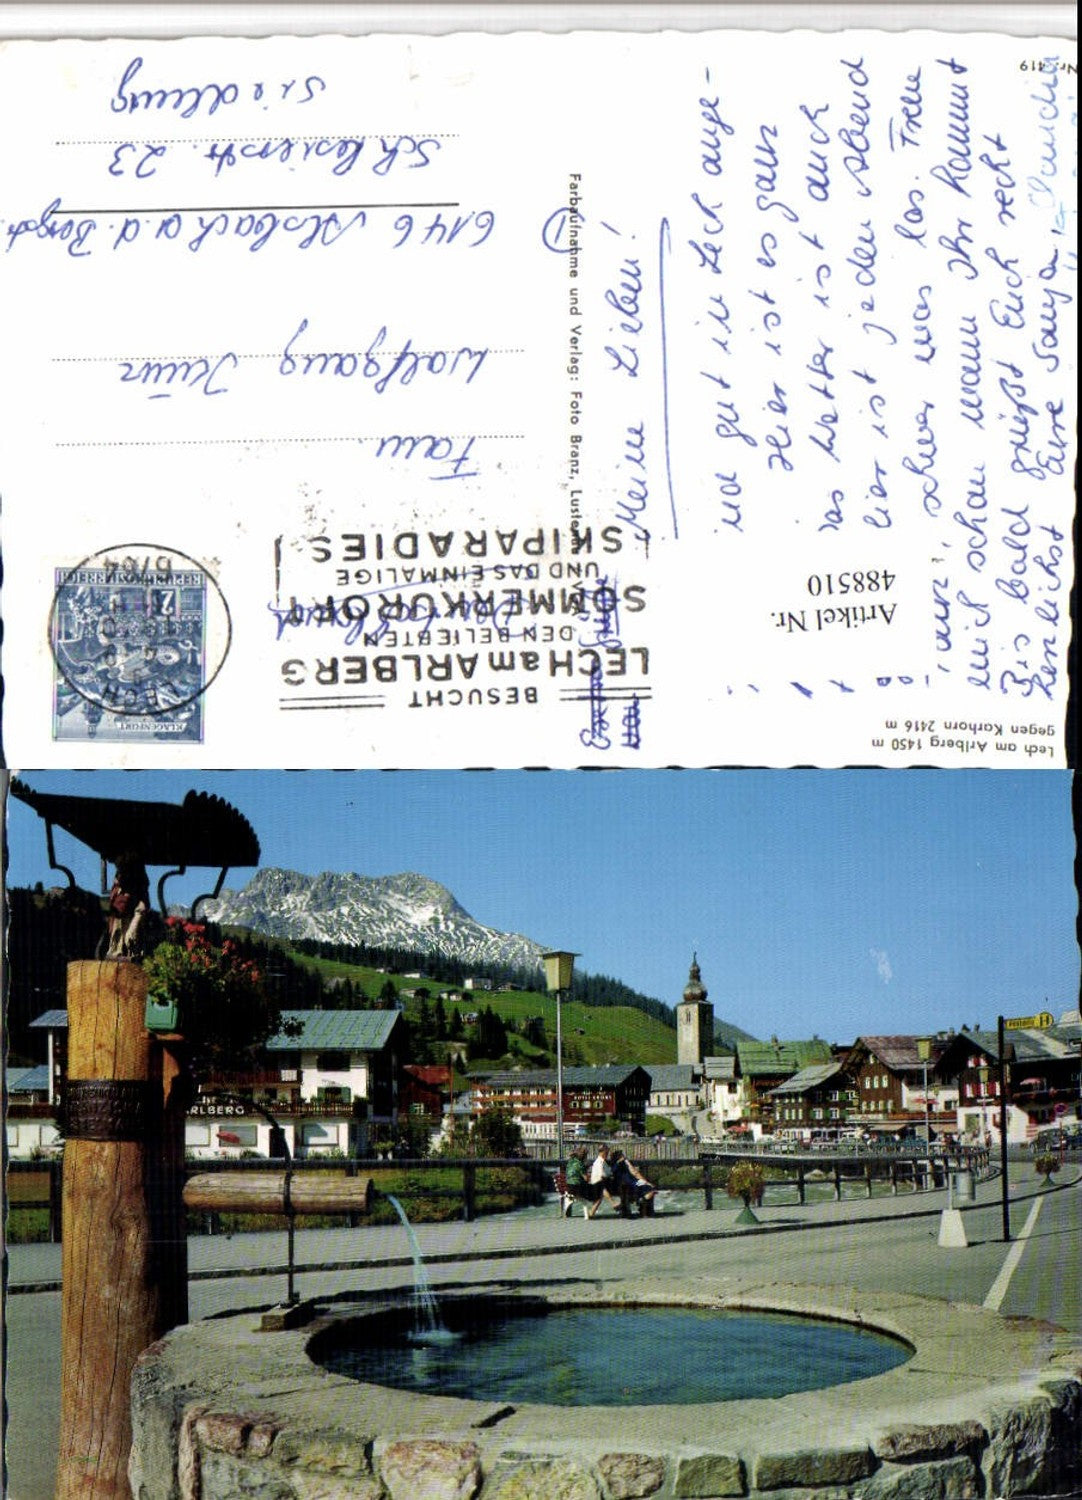 Lech am Arlberg 1450 m
gegen Karhorn 2416 m
Nr. 419
Artikel Nr.
488510
Meine Lieben!
gut in Lech ange-
Hier ist es ganz
das Wetter ist auch
hier ist jeden Abend
schwer was los. Freue
mich schon wann Ihr kommt
Bis bald grüßt Euch recht
herzlichst Eure
Claudia
Farbaufnahme und Verlag: Foto Branz, Lustenau
BESUCHT
LECH am ARLBERG
DEN BELIEBTEN
SOMMERKURORT
UND DAS EINMALIGE
SKIPARADIES
LECH
6764
KLAGENFURT
REPUBLIK ÖSTERREICH
2
Fam.
Wolfgang
6146 Alsbach a.d. Bergstr.
Schlesierstr. 23
Siedlung
ARLBERG
H